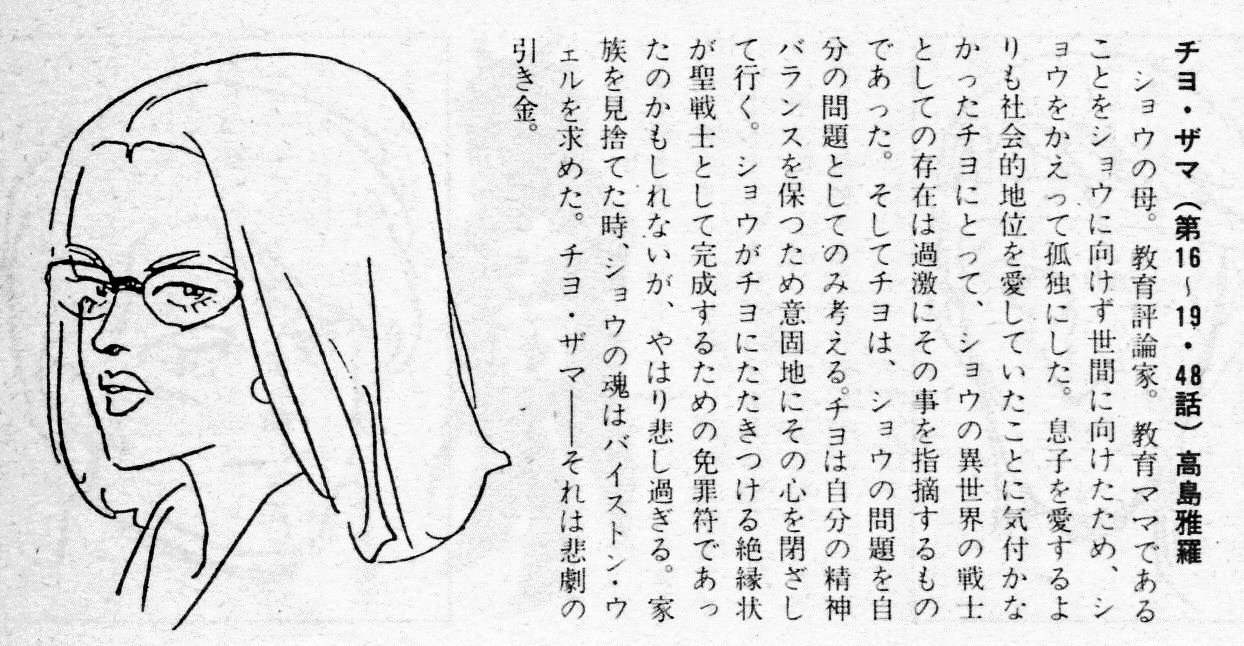 チヨ・ザマ(第16~19・48話)高島雅羅
ショウの母。教育評論家。教育ママである
ことをショウに向けず世間に向けたため、シ
ョウをかえって孤独にした。息子を愛するよ
りも社会的地位を愛していたことに気付かな
かったチヨにとって、ショウの異世界の戦士
としての存在は過激にその事を指摘するもの
であった。そしてチヨは、ショウの問題を自
分の問題としてのみ考える。チヨは自分の精神
バランスを保つため意固地にその心を閉ざし
て行く。ショウがチヨにたたきつける絶縁状
が聖戦士として完成するための免罪符であっ
たのかもしれないが、やはり悲し過ぎる。家
族を見捨てた時、ショウの魂はバイストン・ウ
ェルを求めた。チヨ・ザマ――それは悲劇の
引き金。